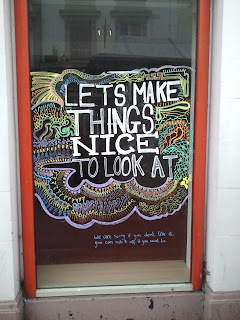 LETS MAKE
THINGS
NICE
TO LOOK AT
We are sorry if you don't like it.
you can rub it off if you want to.